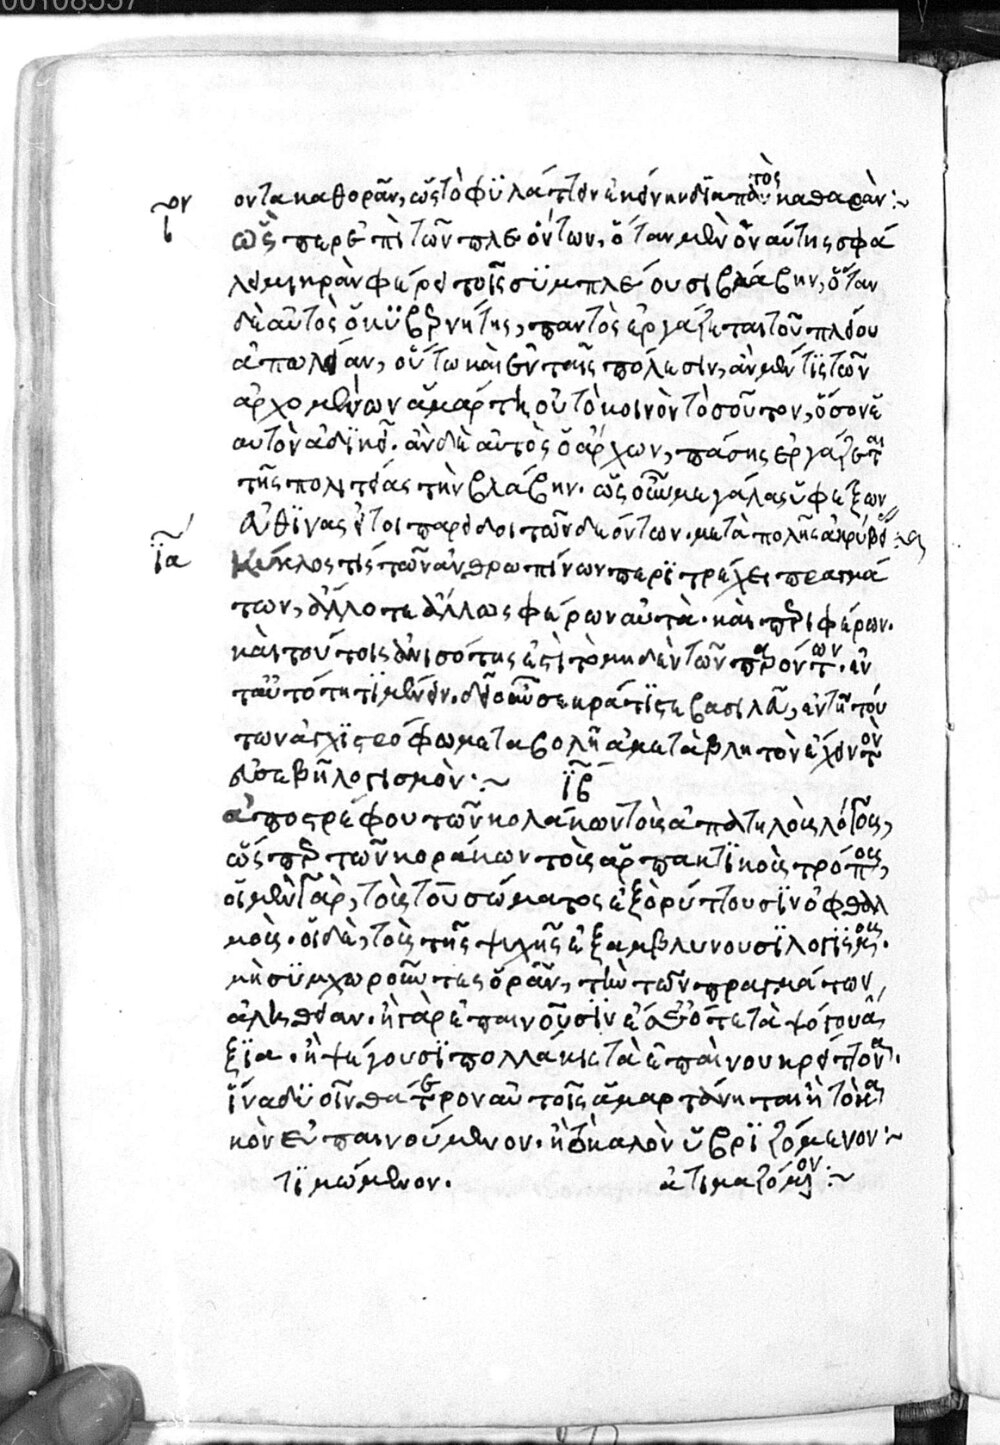 00108557
οντα καθορᾶν, ὥς τὸ φϋλάττειν ἐκείνην διαπαντὸς καθαρὰν :~
ον ι
ὥς περ ἐπὶ τῶν πλεόντων, ὅταν μὲν ὁ ναύτης σφα
λει μικρὰν φέρει τοῖς σϋμπλέουσι βλάβην, ὅταν
δὲ αὐτὸς ὁ κϋβερνήτης, παντὸς ἐργάζεται τοῦ πλοίου
ἀπωλείαν, οὕτω καὶ ἐν ταῖς πόλεσιν, ἂν μέν τϊς τῶν
ἀρχομένων ἁμάρτη, οὐ τὸ κοινὸν τοσοῦτον, ὅσον ἑ
αυτὸν ἀδϊκεῖ. ἂν δὲ αὐτὸς ὁ ἄρχων, πάσης ἐργάζεται
τῆς πολιτείας τὴν βλάβην. ὡς οὖν μεγάλας ὑφέξων
εὐθΰνας εἴτοι παρείδοι τῶν δεόντων. μετὰ πολῆς ἀκρϋβεί
ϊα
κύκλος τίς τῶν ἀνθρωπίνων περϊτρέχει πραγμά
των, ἄλλοτε ἄλλως φέρων αὐτὰ. καὶ περιφέρων.
καὶ τούτοις ἀνισότης ἐςὶ τὸ μηδὲν τῶν παρόντων. ἐν
ταυτότητϊ μένειν. δεῖ οὖν σε κράτϊςε βασιλεῦ, ἐν τῆ τού
των ἀγχϊςρόφω μεταβολῆ ἀμετάβλητον ἔχειν τὸν
εὐσεβῆ λογισμὸν :~ ϊβ
ἀποςρέφου τῶν κολάκων τοὺς ἀπατηλοὺς λόγους,
ὥς περ τῶν κοράκων τοὺς ἁρπακτϊκοὺς τρόπους,
οἱ μὲν γὰρ, τοὺς τοῦ σώματος ἐξορύττουσϊν ὀφθαλ
μοὺς. οἱ δὲ, τοὺς τῆς ψυχῆς ἐξαμβλυνουσϊ λογϊσμοὺς.
μὴ σϋγχωροῦντες ὁρᾶν, τὴν τῶν πραγμάτων
ἀλήθειαν. ἢ γὰρ ἐπαινοῦσϊν ἔσθ ὅτε τὰ ψόγου ἄ
ξϊα. ἢ ψέγουσϊ πολλάκις τὰ ἐπαίνου κρείττονα.
ἵνα δϋοῖν θάτερον αὐτοῖς ἁμαρτάνηται ἢ τὸ κα
κὸν ἐπαινούμενον. ἢ τὸ καλὸν ὑβρϊζόμενον :~
τϊμώμενον. ἀτιμαζόμενον :~